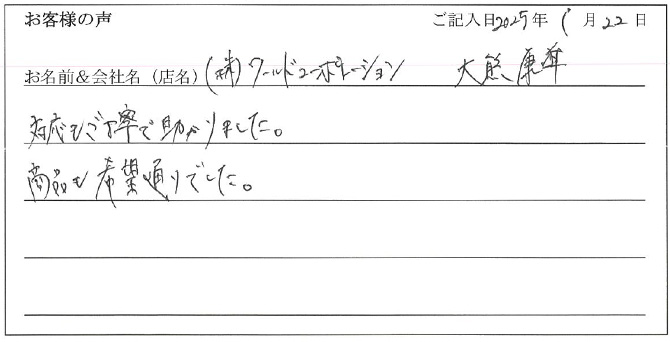 お客様の声 ご記入日2025年 1月22日
お名前&会社名（店名）(株)ワールドコーポレーション 大熊康
対応もご丁寧で助かりました。
商品も希望通りでした。